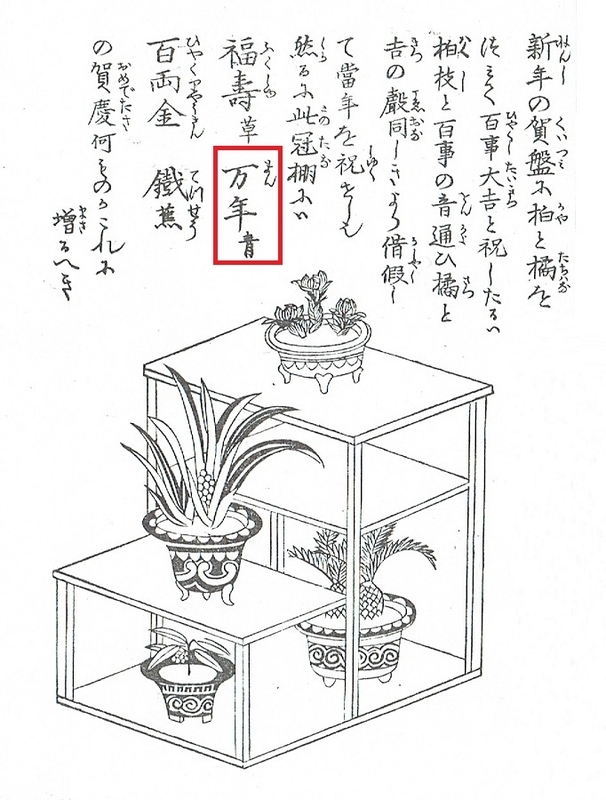 新年の賀盤に柏と橘を
百事大吉と祝したるハ
柏枝と百事の音通ひ橘と
吉の聲同しきより借假し
て當年を祝せしも
然るに此冠棚にハ
福壽草 万年青
百両金 鐵蕉
の賀慶何ものかこれに
増るへき